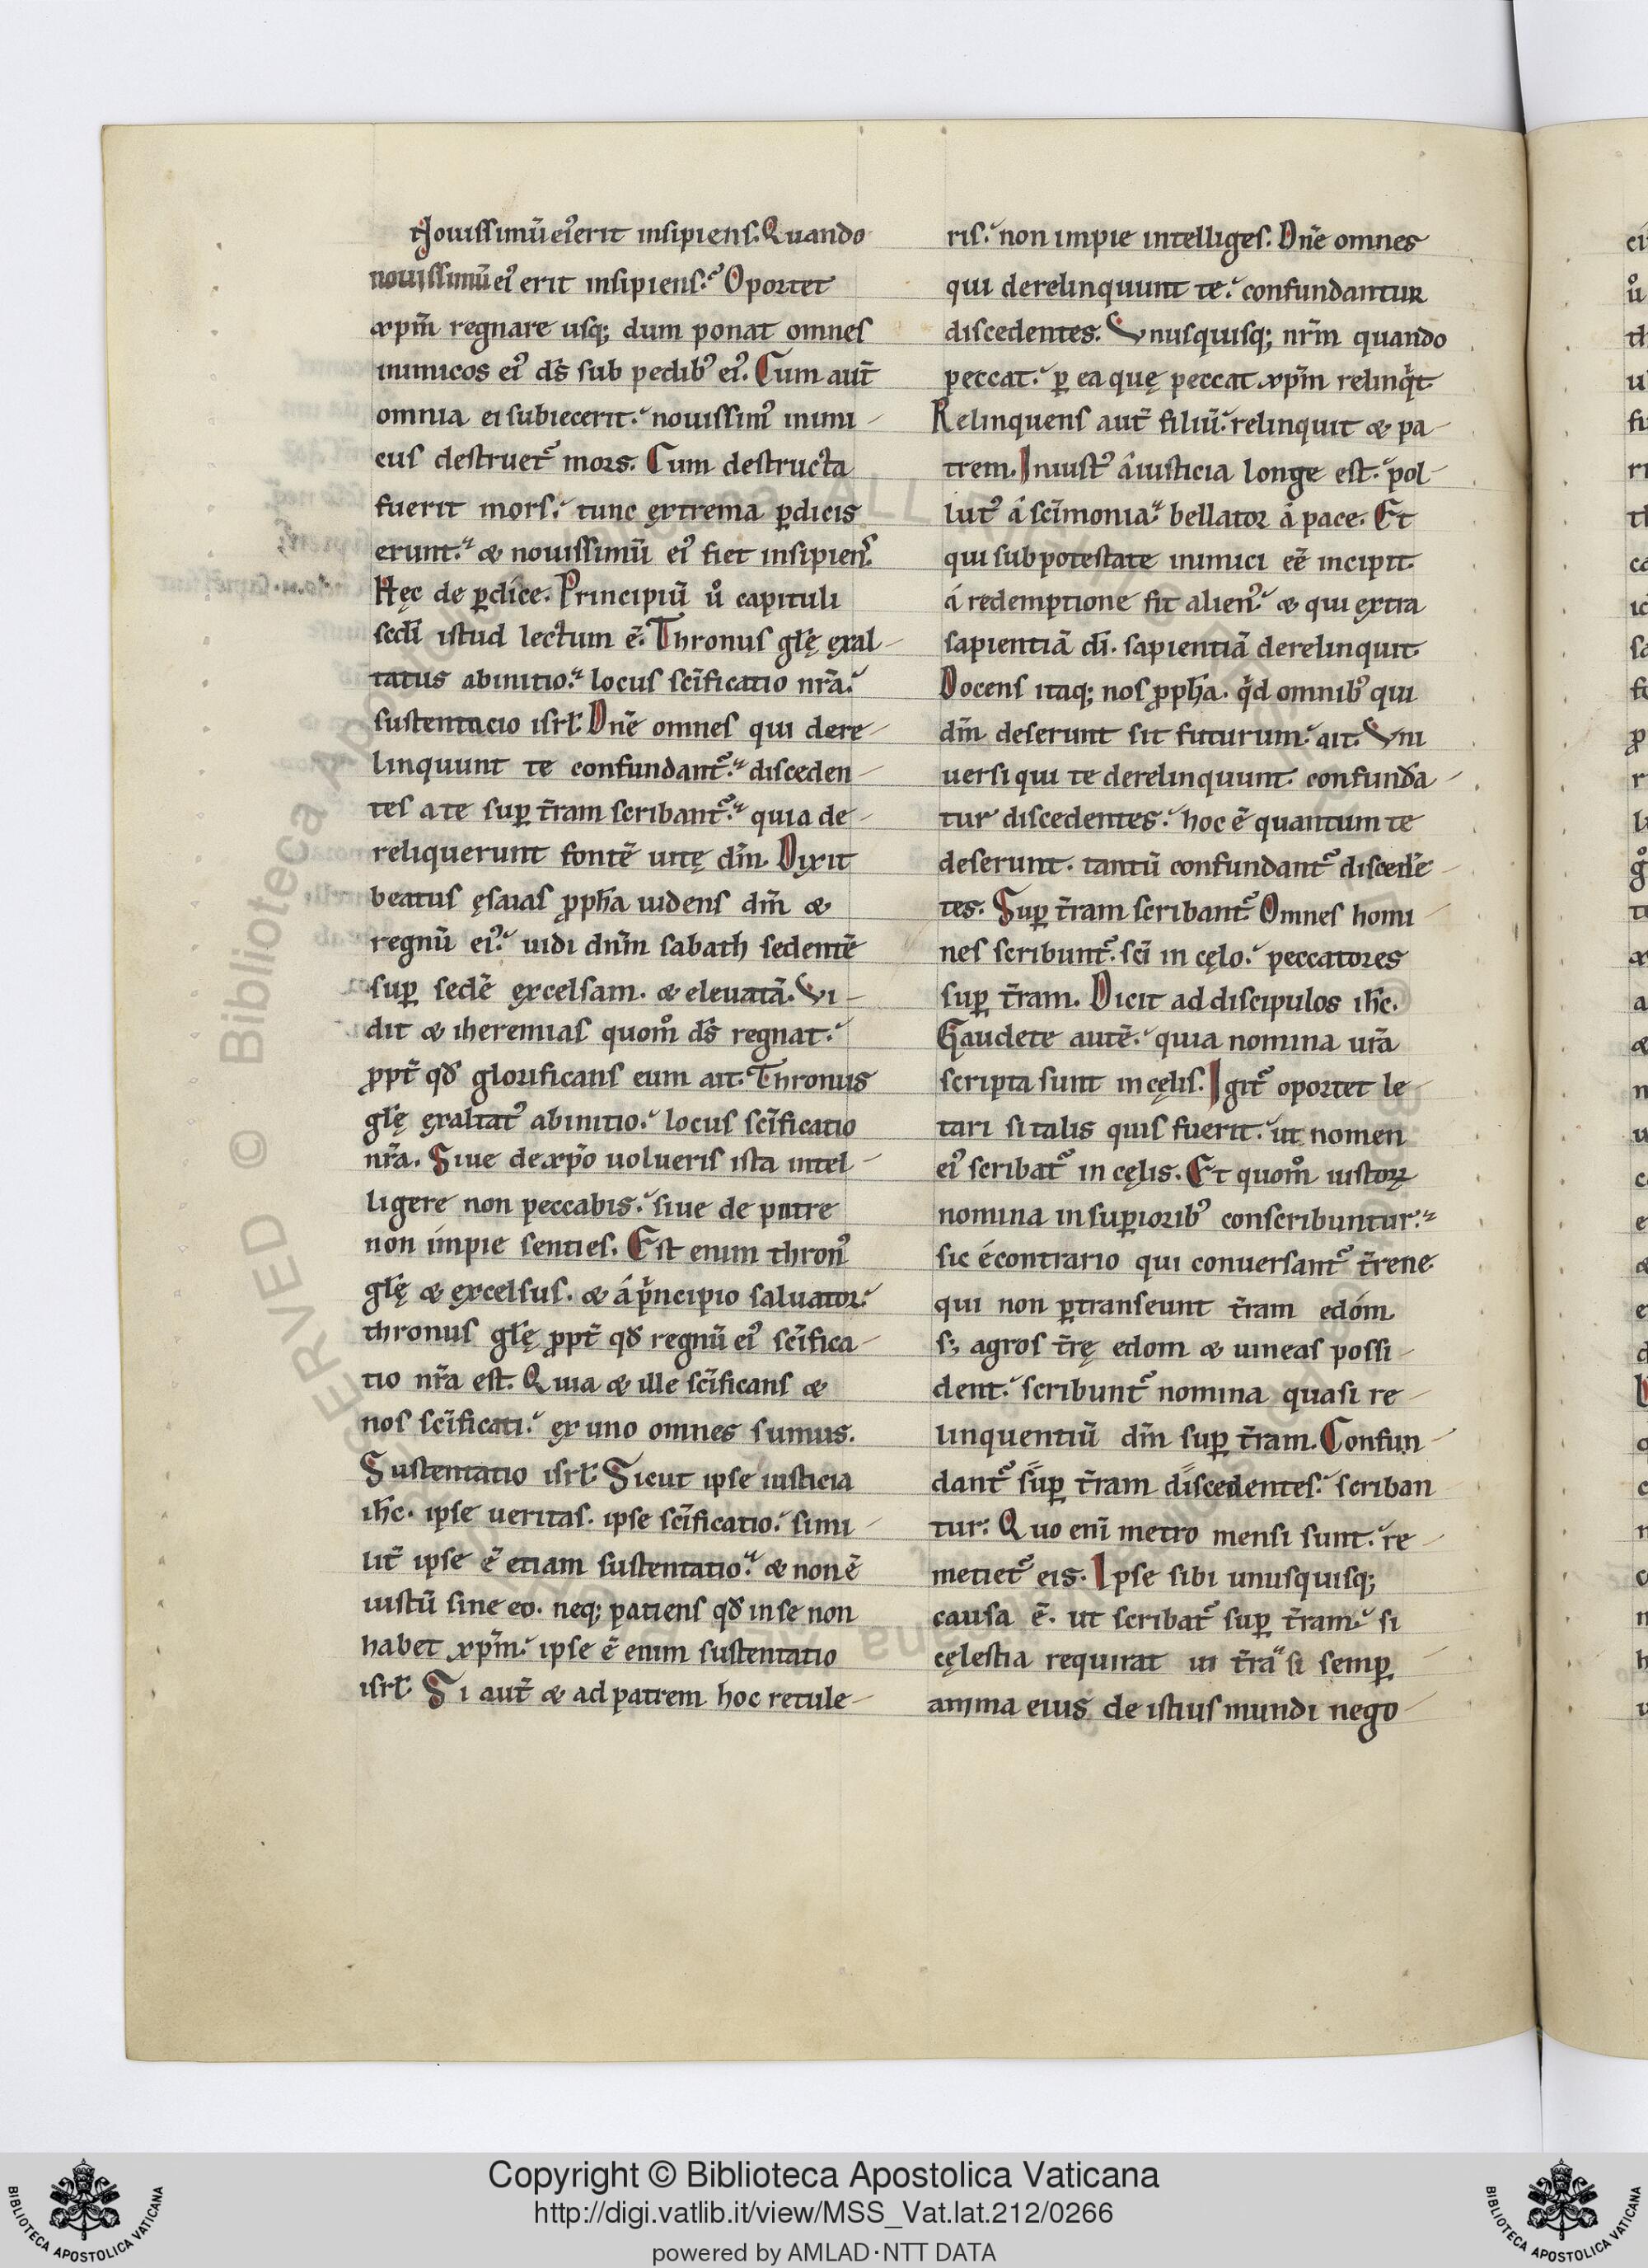 Nouissimũ ei᾽ erit insipiens. Quando
nouissimũ ei᾽ erit insipiens. Oportet
xp̃m regnare usq; dum ponat omnes
inimicos ei᾽ d̃s sub pedib᾽ ei᾽. Cum aut̃
omnia ei subiecerit. nouissim᾽ inimi
cus destruet᾽ mors. Cum destructa
fuerit mors. tunc extrema ꝑdicis
erunt. & nouissimũ ei᾽ fiet insipiens᾽
Hęc de ꝑdice. Principiũ u̾ capituli
sc̃di istud lectum ẽ. Thronus gl̃ę exal
tatus abinitio. locus sc̃ificatio nr̃a.
sustentacio isrl̃. Dñe omnes qui dere
linquunt te confundant᾽. disceden
tes a te suꝑ t̃ram scribant᾽. quia de
reliquerunt fontẽ uitę dm̃. Dixit
beatus ęsaias ꝓph̃a uidens dm̃ &
regnũ ei᾽. uidi dnm̃ sabath sedentẽ
suꝑ sedẽ excelsam. & eleuatã. Vi
dit & iheremias quom̊ d̃s regnat.
ꝓpt̃ qđ glorificans eum ait. Thronus
gl̃ę exaltat᾽ abinitio. locus sc̃ificatio
nr̃a. Siue de xp̃o uolueris ista intel
ligere non peccabis. siue de patre
non impie senties. Est enim thron᾽
gl̃ę & excelsus. & á pͥncipio saluator.
thronus gl̃ę ꝓpt̃ qđ regnũ ei᾽ sc̃ifica
tio nr̃a est. Quia & ille sc̃ificans &
nos sc̃ificati. ex uno omnes sumus.
Sustentatio isrl̃. Sicut ipse iusticia
ih̃c. ipse ueritas. ipse sc̃ificatio. simi
lit̃ ipse ẽ etiam sustentatio. & non ẽ
iustũ sine eo. neq; patiens qđ in se non
habet xp̃m. ipse ẽ enim sustentatio
isrl̃. Si aut̃ & ad patrem hoc retule
ris. non impie intelliges. Dñe omnes
qui derelinquunt te. confundantur
discedentes. Vnusquisq; nr̃m quando
peccat. ꝑ ea quę peccat xp̃m relinqͥt
Relinquens aut̃ filiũ. relinquit & pa
trem. Iniust᾽ á iusticia longe est. pol
lut᾽ á sc̃imonia. bellator á pace. Et
qui sub potestate inimici eẽ incipit
á redemptione fit alien᾽. & qui extra
sapientiã dĩ. sapientiã derelinquit
Docens itaq; nos ꝓph̃a. qͥd omnib᾽ qui
dm̃ deserunt sit futurum. ait. Vni
uersi qui te derelinquunt. confunda
tur discedentes. hoc ẽ quantum te
deserunt. tantũ confundant᾽ discedẽ
tes. Suꝑ t̃ram scribant᾽. Omnes homi
nes scribunt᾽. sc̃i in cęlo. peccatores
suꝑ t̃ram. Dicit ad discipulos ih̃c.
Gaudete autẽ. quia nomina ur̃a
scripta sunt in cęlis. Igit᾽ oportet le
tari si talis quis fuerit. ut nomen
ei᾽ scribat᾽ in cęlis. Et quom̊ iustoꝝ
nomina in suꝑiorib᾽ conscribuntur.
sic écontrario qui conuersant᾽ t̃rene
qui non ꝑtranseunt t̃ram edóm
s; agros t̃rę edom & uineas possi
dent. scribunt᾽ nomina quasi re
linquentiũ dm̃ suꝑ t̃ram. Confun
dant᾽ suꝑ t̃ram discedentes. scriban
tur. Quo enĩ metro mensi sunt. re
metiet᾽ eis. Ipse sibi unusquisq;
causa ẽ. ut scribat᾽ suꝑ t̃ram. si
cęlestia requirat in t̃ra si semꝑ
anima eius de istius mundi nego
Copyright © Biblioteca Apostolica Vaticana
http://digi.vatlib.it/view/MSS_Vat.lat.212/0266
powered by AMLAD·NTT DATA
BIBLIOTECA APOSTOLICA VATICANA
BIBLIOTECA APOSTOLICA VATICANA